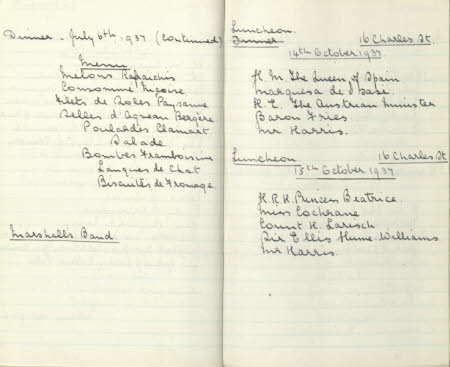 Dinner - July 6th 1937 (Continued)
Menu
Melons Rafraichis
Consommé Niçoise
Filets de Soles Paysanne
Selles d'Agneau Bergère
Poulardes Clamart
Salade
Bombes Framboisine
Langues de Chat
Biscuités de Fromage
Marshalls Band.
Luncheon.
Dinner 16 Charles St.
14th October 1937.
H.M. The Queen of Spain
Marquesa de
H.E. The Austrian Minister
Baron Fries
Mr Harris.
Luncheon 16 Charles St
15th October 1937
H.R.H. Princess Beatrice.
Miss Cochrane
Count H. Larisch
Sir Ellis Hume-Williams
Mr Harris.